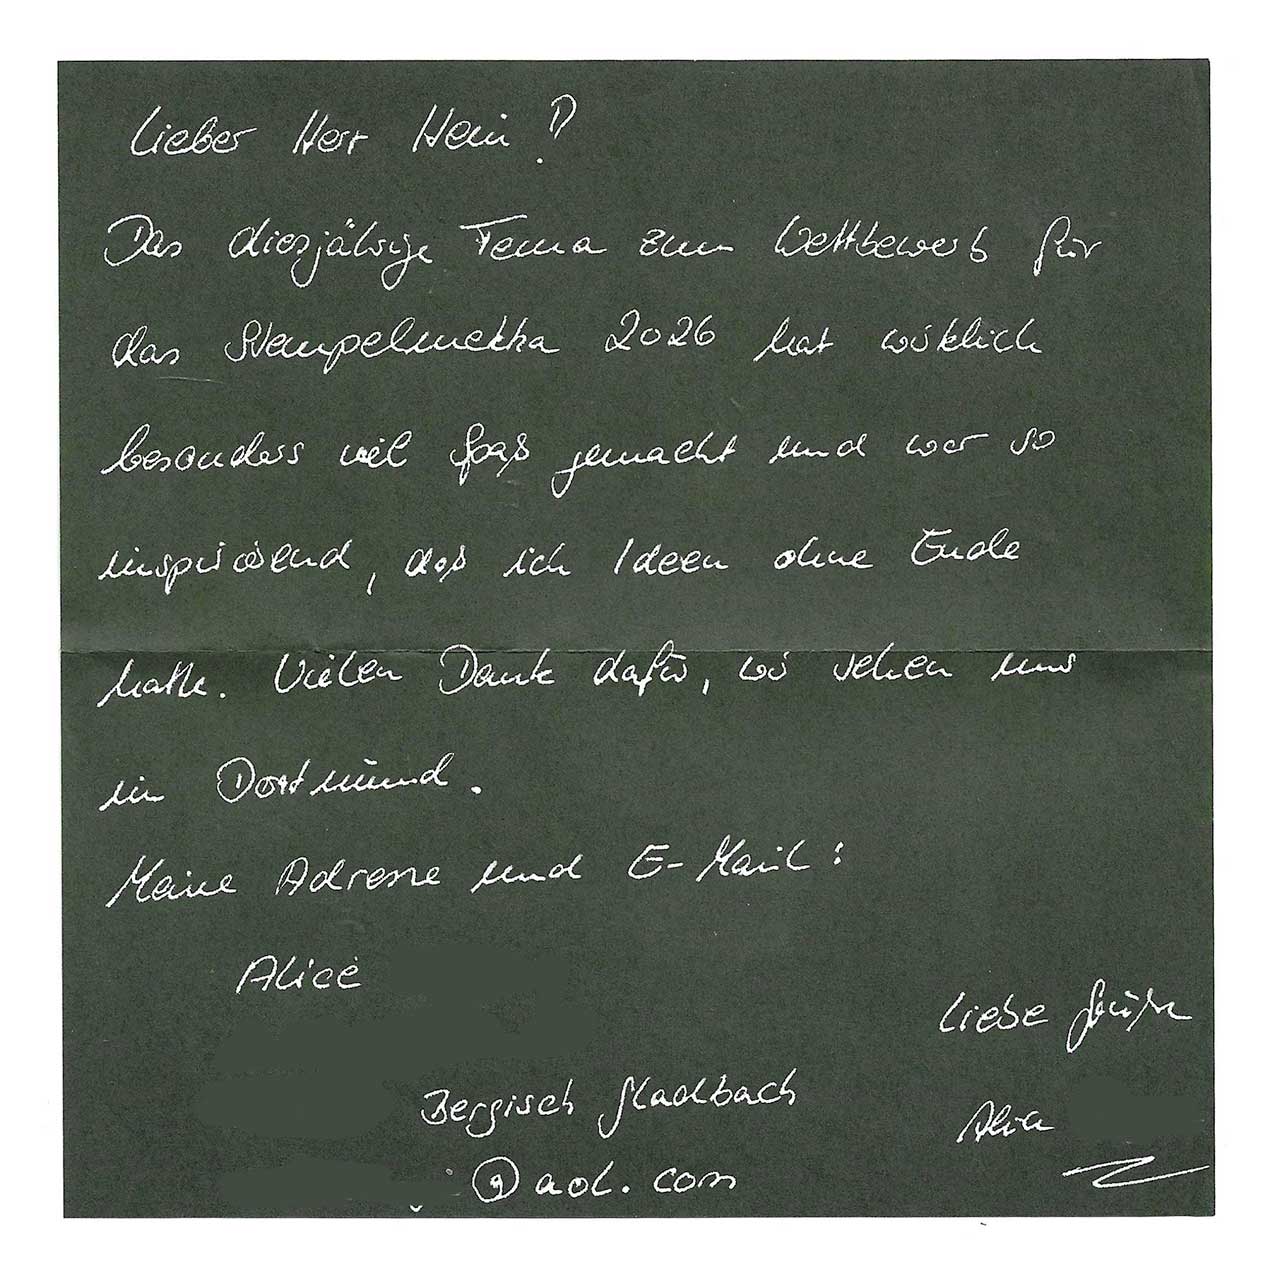 Lieber Herr Hein!
Das diesjährige Tema zum Wettbewerb für
das Stempelmekka 2026 hat wirklich
besonders viel Spaß gemacht und war so
inspirierend, daß ich Ideen ohne Ende
hatte. Vielen Dank dafür, wir sehen uns
in Dortmund.
Meine Adresse und E-Mail:
Alice
Liebe Grüße
Bergisch Gladbach
Alice
@aol.com